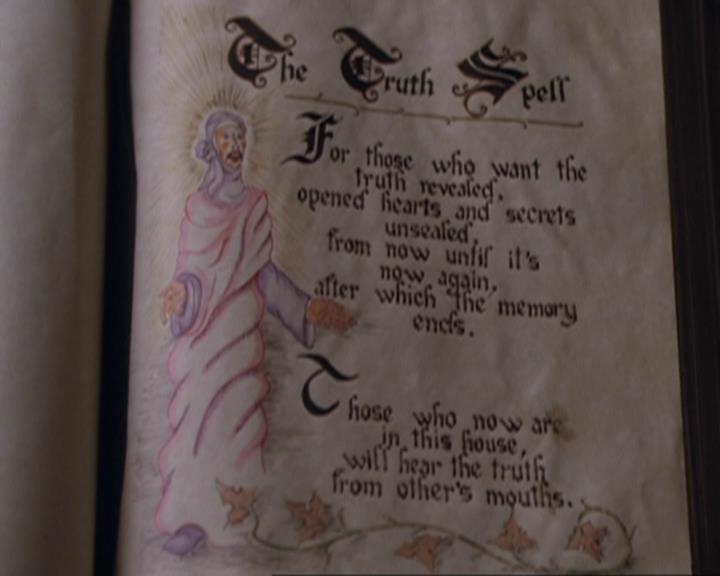 The Truth Spell
For those who want the
truth revealed,
opened hearts and secrets
unsealed,
from now until it's
now again,
after which the memory
ends.
Those who now are
in this house,
will hear the truth
from other's mouths.